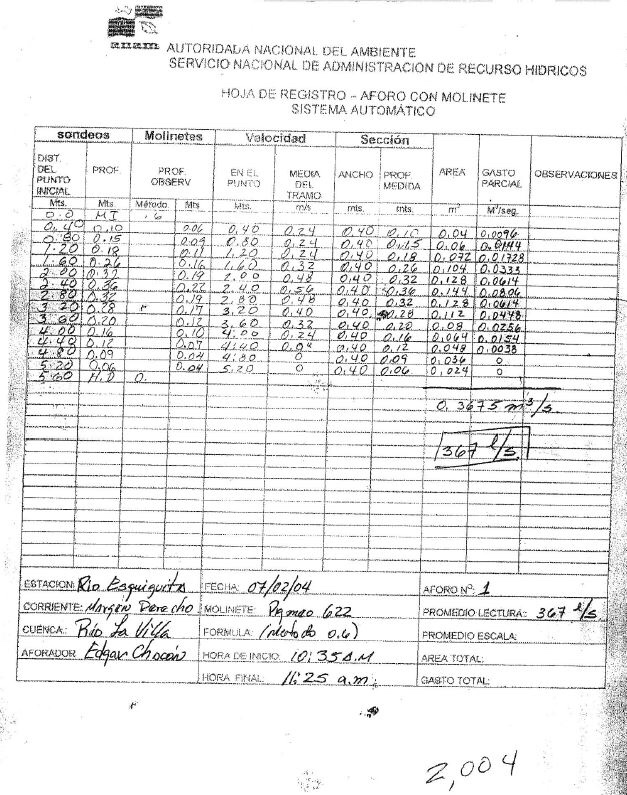 anam AUTORIDADA NACIONAL DEL AMBIENTE
SERVICIO NACIONAL DE ADMINISTRACION DE RECURSO HIDRICOS
HOJA DE REGISTRO - AFORO CON MOLINETE
SISTEMA AUTOMÁTICO
sondeos Molinetes Velocidad Sección
DIST. DEL PUNTO INICIAL PROF. PROF. OBSERV EN EL PUNTO MEDIA DEL TRAMO ANCHO PROF MEDIDA AREA GASTO PARCIAL OBSERVACIONES
Mts. Mts. Método Mts Mts. m/s mts. mts. m² M³/seg.
0.0 MI .6
0.40 0.10 0.06 0.40 0.24 0.40 0.10 0.04 0.0096
0.80 0.15 0.09 0.80 0.24 0.40 0.15 0.06 0.0144
1.20 0.18 0.11 1.20 0.24 0.40 0.18 0.072 0.01728
1.60 0.26 0.16 1.60 0.32 0.40 0.26 0.104 0.0333
2.00 0.32 0.19 2.00 0.48 0.40 0.32 0.128 0.0614
2.40 0.36 0.22 2.40 0.56 0.40 0.36 0.144 0.0806
2.80 0.32 0.19 2.80 0.48 0.40 0.32 0.128 0.0614
3.20 0.28 0.17 3.20 0.40 0.40 0.28 0.112 0.0448
3.60 0.20 0.12 3.60 0.32 0.40 0.20 0.08 0.0256
4.00 0.16 0.10 4.00 0.24 0.40 0.16 0.064 0.0154
4.40 0.12 0.07 4.40 0.40 0.12 0.048 0.0038
4.80 0.09 0.04 4.80 0 0.40 0.09 0.036 0
5.20 0.06 0.04 5.20 0 0.40 0.06 0.024 0
5.60 M.D 0.
0.3675 m³/s
367 l/s
ESTACION: Rio Esquiguita FECHA: 07/02/04 AFORO Nº: 1
CORRIENTE: Margen Derecho MOLINETE: 622 PROMEDIO LECTURA: 367 l/s
CUENCA: Rio La Villa FORMULA: (metodo 0.6) PROMEDIO ESCALA:
AFORADOR Edgar Chacón HORA DE INICIO: 10:35 A.M AREA TOTAL:
HORA FINAL: 11:25 a.m. GASTO TOTAL:
2,004